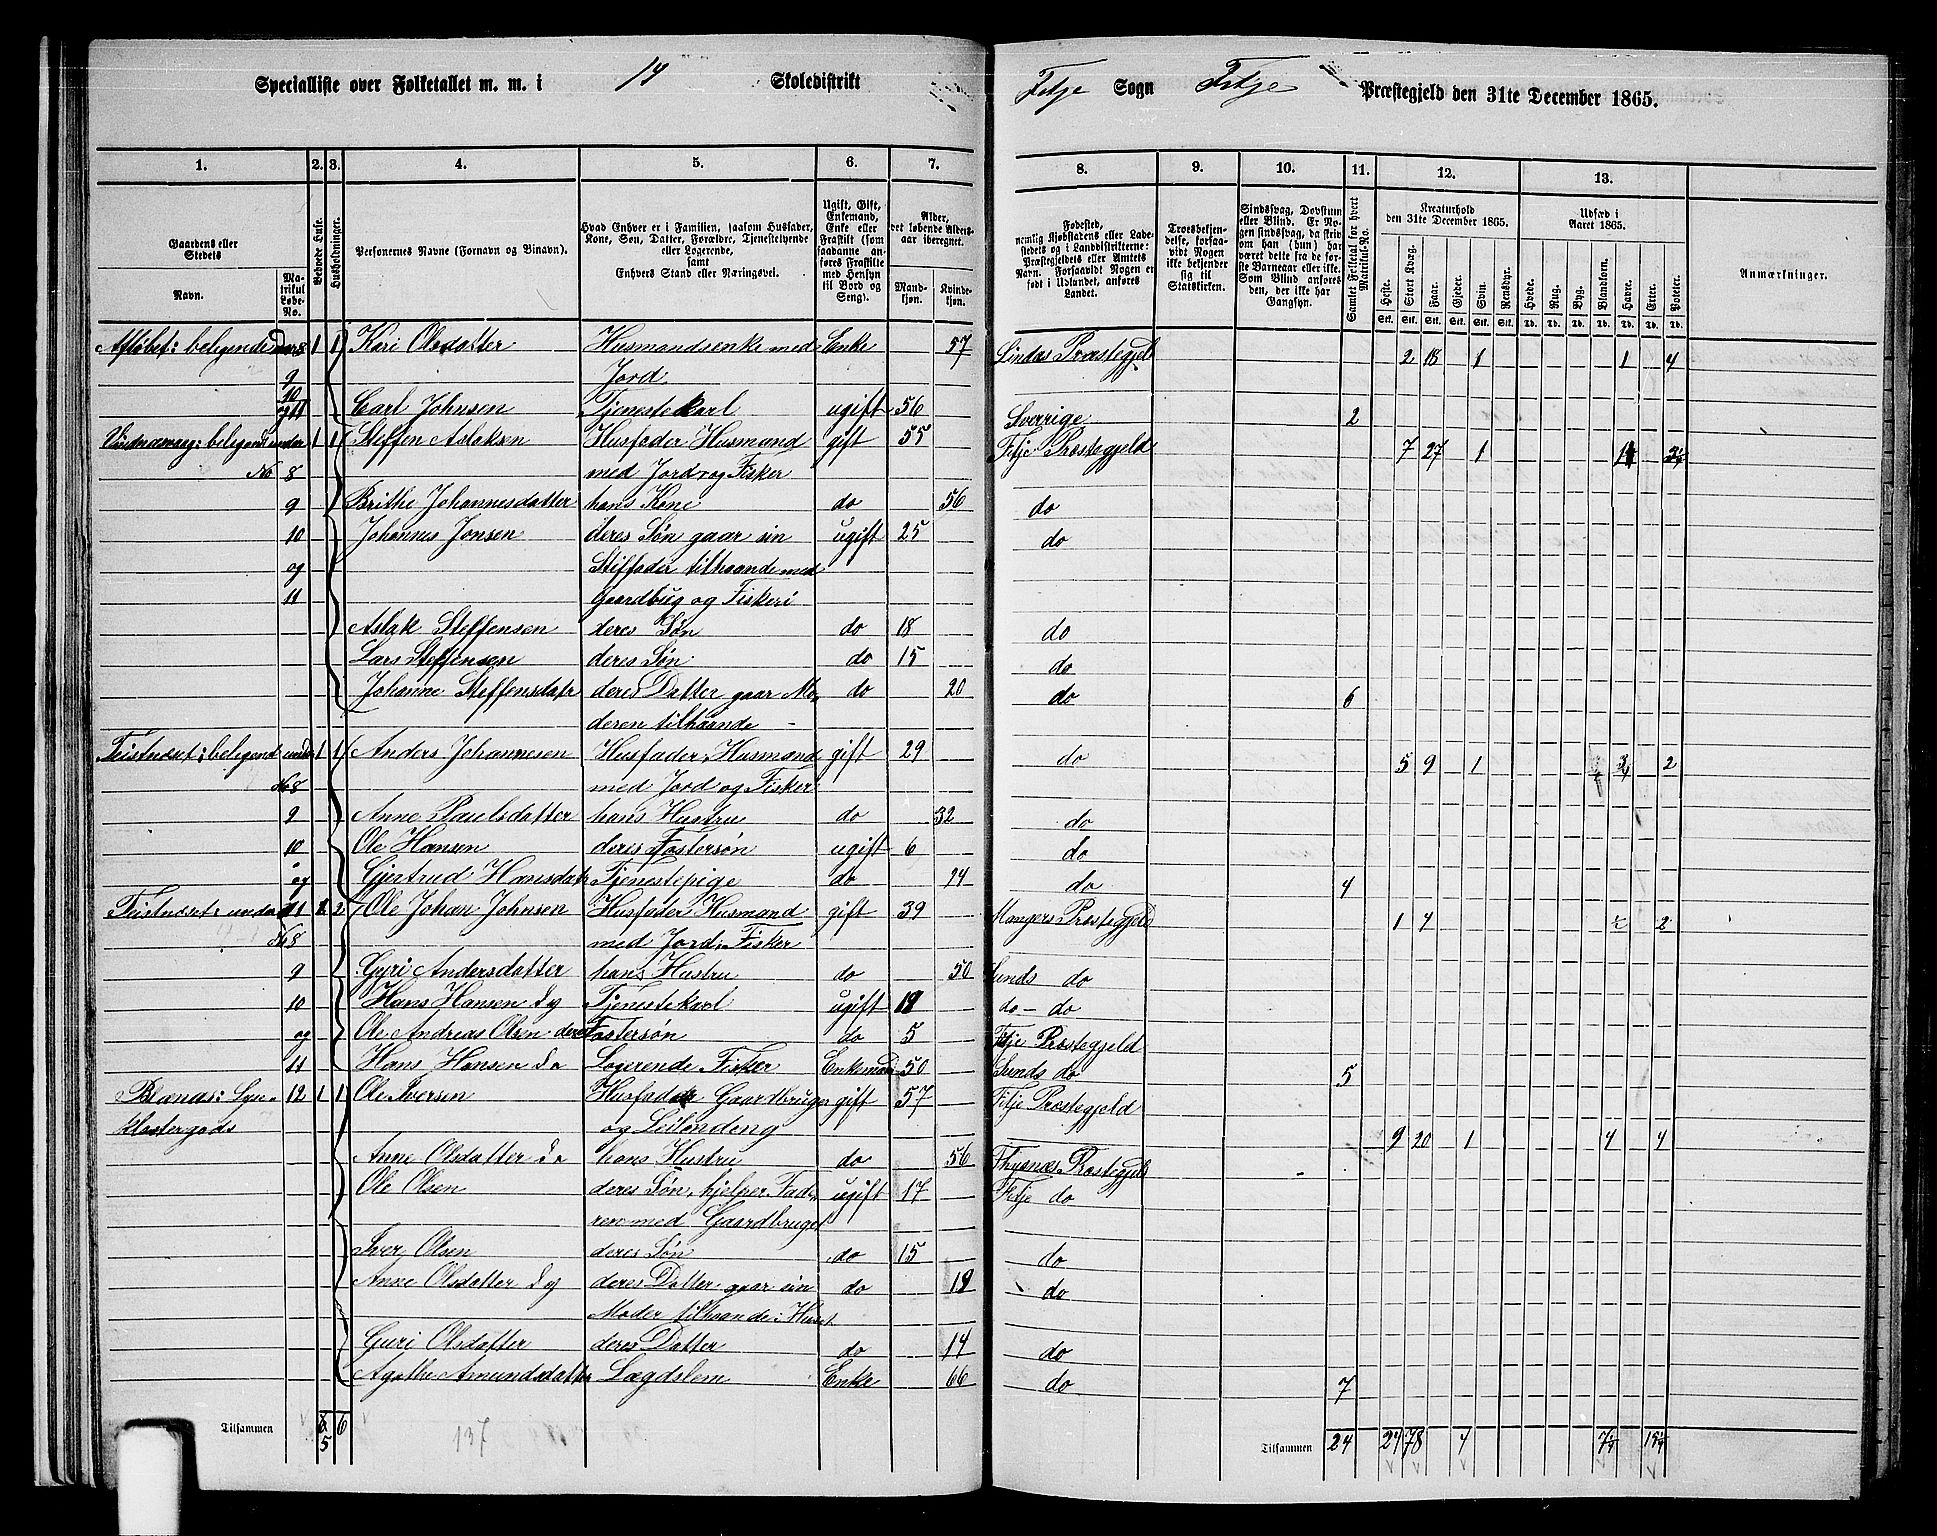 Specialliste over Folketallet m. m. i 14 Skoledistrikt Fitje Sogn Fitje Præstegjeld den 31te December 1865.
1. 2. 3. 4. 5. 6. 7. 8. 9. 10. 11. 12. 13.
Gaardens eller Stedets
Navn. Matrikul Løbe-No.
Beboede Huse.
Husholdninger.
Personernes Navne (Fornavn og Binavn).
Hvad Enhver er i Familien, saasom Husfader, Kone, Søn, Datter, Forældre, Tjenestetyende eller Logerende, samt Enhvers Stand eller Næringsvei.
Ugift, Gift, Enkemand, Enke eller Fraskilt (som saadanne anføres Fraskilte med Hensyn til Bord og Seng).
Alder, det løbende Alders-aar iberegnet.
Mandkjøn. Kvindekjøn.
Fødested, nemlig Kjøbstadens eller Ladestedets og i Landdistrikterne: Præstegjeldets eller Amtets Navn. Forsaavidt Nogen er født i Udlandet, anføres Landet.
Troesbekjendelse, forsaavidt Nogen ikke bekjender sig til Statskirken.
Sindssvag, Døvstum eller Blind. Er Nogen sindssvag, da skrives om han (hun) har været dette fra de første Barneaar eller ikke. Som Blind anføres den, der ikke har Gangsyn.
Samlet Folketal for hvert Matrikul-No.
Kreaturhold den 31te December 1865.
Heste. Stort Kvæg. Faar. Gjeder. Svin. Rensdyr.
Udsæd i Aaret 1865.
Hvede. Rug. Byg. Blandkorn. Havre. Erter. Poteter.
Anmærkninger.
8 1 1 Kari Olsdatter Husmandsenke med Enke 57 Lindås Præstegjeld 2 18 1 1 4
9 Jord
10
og 11 Carl Johnsen Tjenestekarl ugift 56 Sverrige 2
beligend under 1 1 Steffen Aslaksen Husfader Husmand gift 55 Fitje Præstegjeld 7 27 1
No 8 med Jord og Fisker
9 Brithe Johannesdatter hans Kone do 56 do
10 Johannes Jonsen deres Søn gaar sin ugift 25 do
og Stiffader tilhaande med
11 Gaardbrug og Fiskeri
Aslak Steffensen deres Søn do 18 do
Lars Steffensen deres Søn do 15 do
Johanne Steffensdatr deres Datter gaar Mo- do 20 do 6
deren tilhaande
Teistnæset: beligend under 1 1 Anders Johannesen Husfader, Husmand gift 29 do 5 9 1 2
No 8 med Jord og Fisker
9 Anne Paulsdatter hans Hustru do 32 do
10 Ole Hansen deres Fostersøn ugift 6 do
og Gjertrud Hansdatr Tjenestepige do 24 do 4
Teistnæset: under 11 2 Ole Johan Johnsen Husfader Husmand gift 39 Mangers Præstegjeld 1 4 2
No 8 med Jord, Fisker
9 Gyri Andersdatter hans Hustru do 50 Sunds do
10 Hans Hansen Tjenestekarl ugift do - do
og Ole Andreas Olsen deres Fostersøn do 5 Fitje Præstegjeld
11 Hans Hansen Logerende Fisker Enkemand 50 Sunds do 5
12 1 1 Ole Iversen Husfader Gaardbruger gift 57 Fitje Præstegjeld
klostergods og Leilending 9 20 1 4 4
Anne Olsdatter hans Hustru do 56 Thysnæs Præstegjeld
Ole Olsen deres Søn, hjelper Fade- ugift 17 Fitje do
ren med Gaardbruget
Iver Olsen deres Søn do 15 do
Anne Olsdatter deres Datter gaar sin do do
Moder tilhaande i Huset
Guri Olsdatter deres Datter do 14 do
Agathe Amundsdatter Lægdslem Enke 66 do 7
Tilsammen 5 6 137 Tilsammen 24 24 78 4